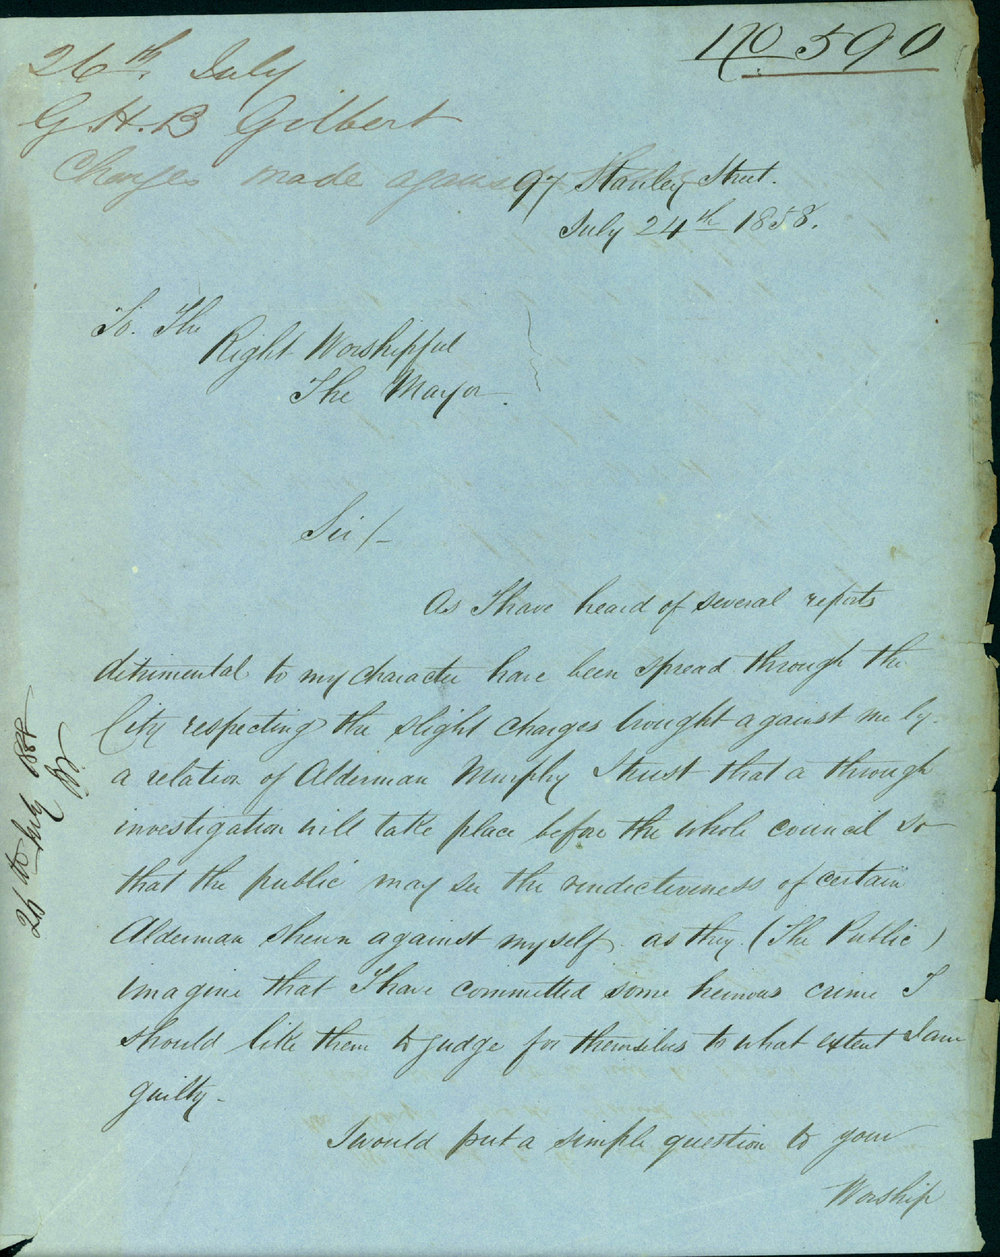 No 590
26th July
G.H.B Gilbert
Charges made against
97 Stanley Street.
July 24th 1858.
To. The
Right Worshipful
The Mayor.
Sir/-
As I have heard of several reports
detrimental to my character have been spread through the
City respecting the slight charges brought against me by
a relation of Alderman Murphy I trust that a through
investigation will take place before the whole council so
that the public may see the vindictiveness of certain
Alderman shewn against myself. as they (The Public)
imagine that I have committed some heinous crime I
should like them to judge for themselves to what extent I am
guilty.
I would put a simple question to your
Worship
26th July